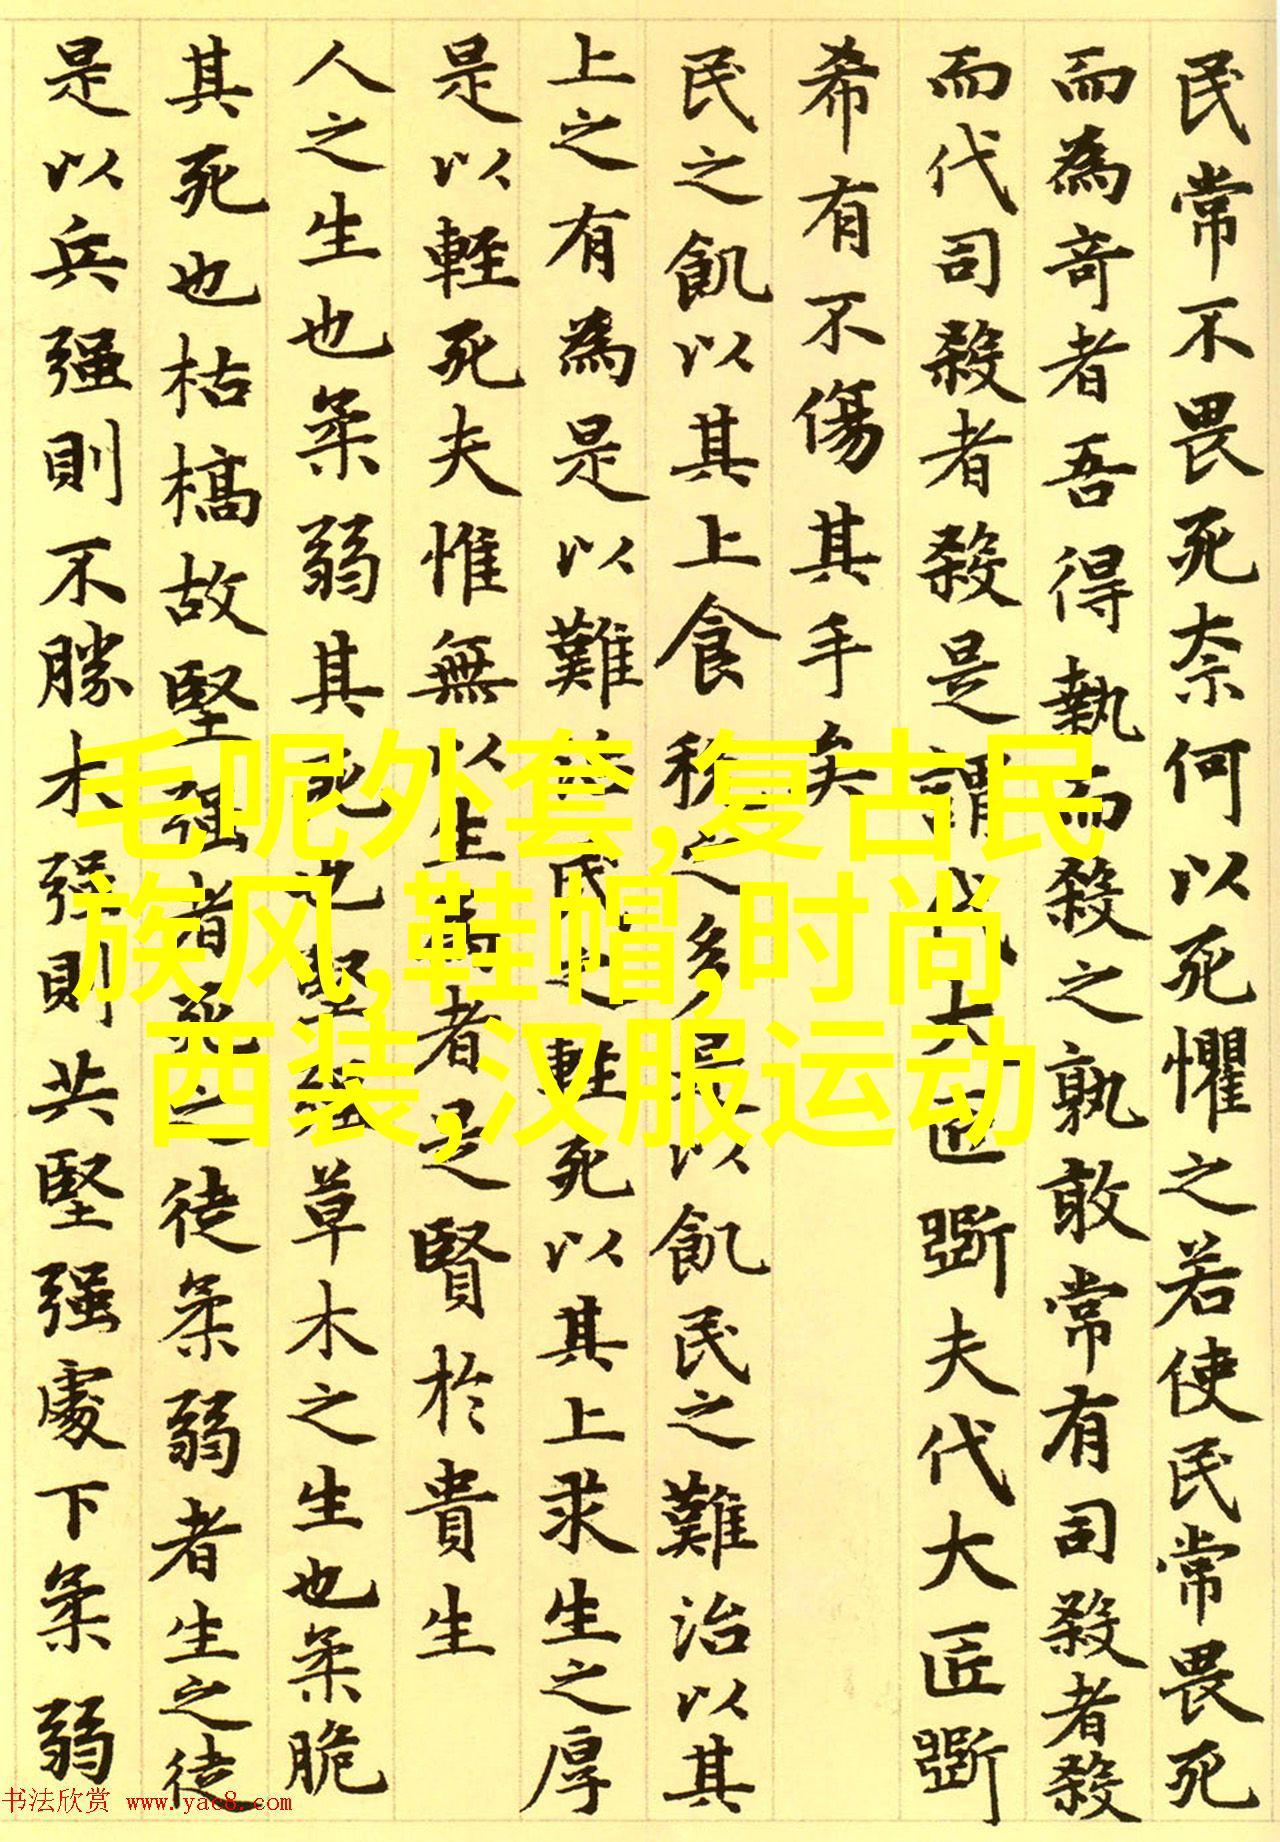 民常不畏死奈何以死懼之若使民常畏死
而為奇者吾得執而殺之孰敢常有司殺者殺
而代司殺者殺是謂代大匠斲夫代大匠斲
希有不傷其手矣
民之飢以其上食稅之多是以飢民之難治以其
上之有為是以難治民之輕死以其上求生之厚
是以輕死夫惟無以生為者是賢於貴生
人之生也柔弱其死也堅强草木之生也柔脆
其死也枯槁故堅强者死之徒柔弱者生之徒
是以兵强則不勝木强則共堅强處下柔弱
毛呢外套,复古民
族风,鞋帽,时尚
西装,汉服运动
书法欣赏 www.yac8.com